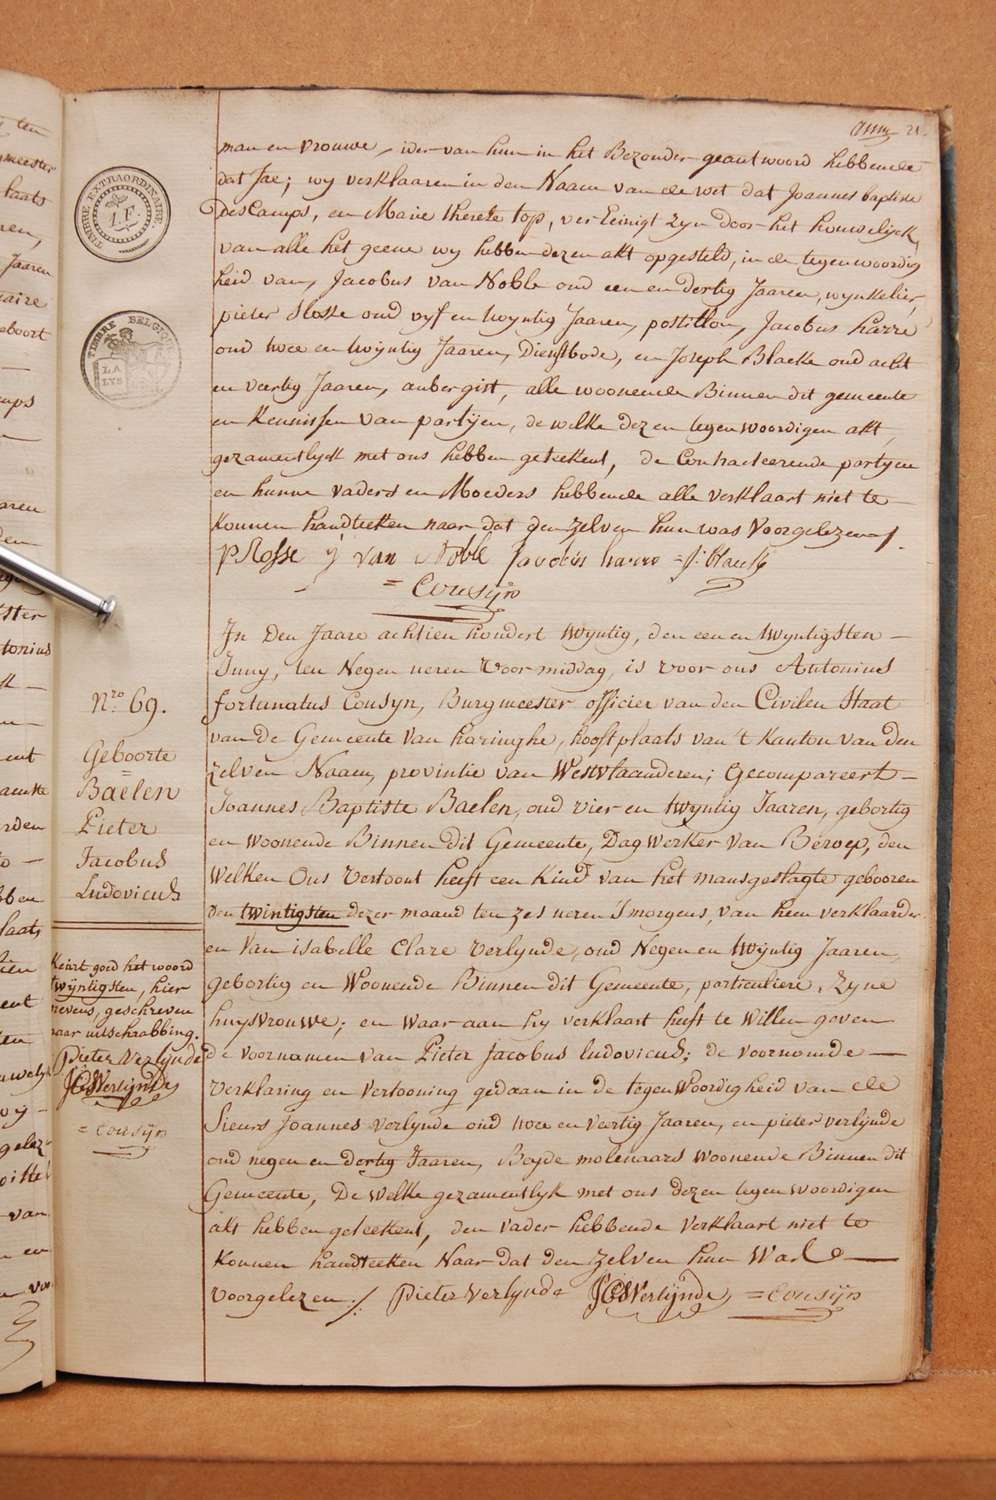 21.
man en vrouwe, ider van hun in het Bezonder geantwoord hebbende
dat Jae; wy verklaaren in den Naam van de wet dat Joannes baptiste
DesCamps, en Marie thereze top, vereinigt zyn door het houwelijck,
van alle het geene wy hebben dezen akt opgesteld, in de tegenwoordig
heid van, Jacobus van Noble oud een en dertig Jaaren, wynkelier,
pieter Rosse oud vyf en twyntig Jaaren, postillon, Jacobus harre
oud twee en twyntig Jaaren, Dienstbode, en Joseph Blacke oud acht
en veertig Jaaren, aubergist, alle woonende Binnen dit gemeente
en Kennissen van partyen, de welke dezen tegenwoordigen akt,
gezamentlyck met ons hebben geteekent, de Contracteerende partyen
en hunne vaders en Moeders hebbende alle verklaart niet te
konnen handteeken naar dat den zelven hun was voorgelezen
P Rosse J van Noble
= Cousijn
In Den Jaare achtien hondert twyntig, den een en twyntigsten
Juny, ten Negen ueren Voormiddag, is voor ons Antonius
fortunatus Cousyn, Burgmeester officier van den Civilen Staat
van de Gemeente van haringhe, hooftplaats van 't Kanton van den
zelven Naam, provintie van Westvlaanderen; Gecompareert
Joannes Baptiste Baelen, oud vier en twyntig Jaaren, gebortig
en woonende Binnen dit Gemeente, Dagwerker van Beroep, den
Welken Ons Vertoont heeft een Kind van het mansgeslagte gebooren
den twintigsten dezer maand ten zes ueren 's morgens, van hem verklaarder
en van isabelle Clare verlynde, oud Negen en twyntig Jaaren,
gebortig en Woonende Binnen Dit Gemeente, particuliere, zyne
huysvrouwe; en waar aan hy verklaart heeft te willen geven
de voornamen van Pieter Jacobus ludovicus; de voornoemde
verklaring en vertooning gedaan in de tegenwoordigheid van de
Sieurs Joannes verlynde oud twee en veertig Jaaren, en pieter verlynde
oud negen en dertig Jaaren, Beyde molenaars woonende Binnen dit
Gemeente, De welke gezamentlyk met ons dezen tegenwoordigen
akt hebben geteekent, den vader hebbende verklaart niet te
konnen handteeken Naar dat den zelven hun Was
voorgelezen ./. Pieter Verlynde JC Verlynde = Cousijn
TIMBRE EXTRAORDINAIRE
TIMBRE BELGIQUE
LA
LYS
Nro 69.
Geboorte
=
Baelen
Pieter
Jacobus
Ludovicus
Keurt goed het woord
twijntigsten, hier
nevens, geschreven
naar uitschrabbing.
Pieter Verlynde
JC Verlynde
= cousijn